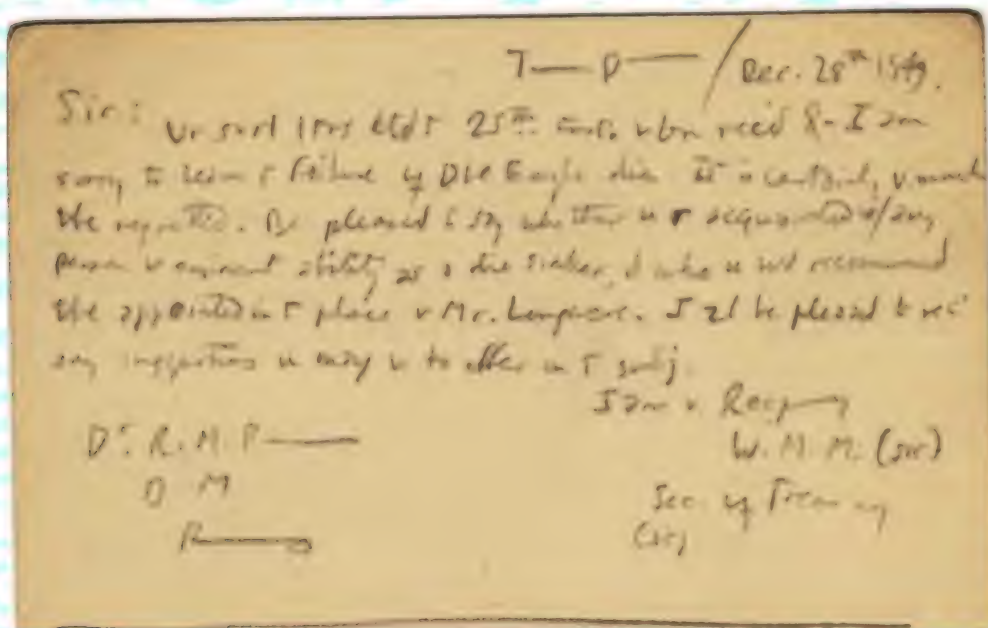 T—— D—— / Dec. 28th 1849.
Sir: Ur sevl ltrs dtd 25th inst. v bn recd & - I am
sorry to learn r failure of Dbl Eagle dies. It is certainly v much
tbe regretted. Be pleased to say whether u r acquainted w/ any
person v eminent ability as a die sinker, & who u wd recommend
tbe appointed in r place v Mr. Longacre. I sl be pleased to rec
any suggestions u may v to offer on r subj.
I am v. Resp——y
Dr. R. M. P——
W. M. M. (sic)
D M
Sec. of Treasury
P——a
(sic)